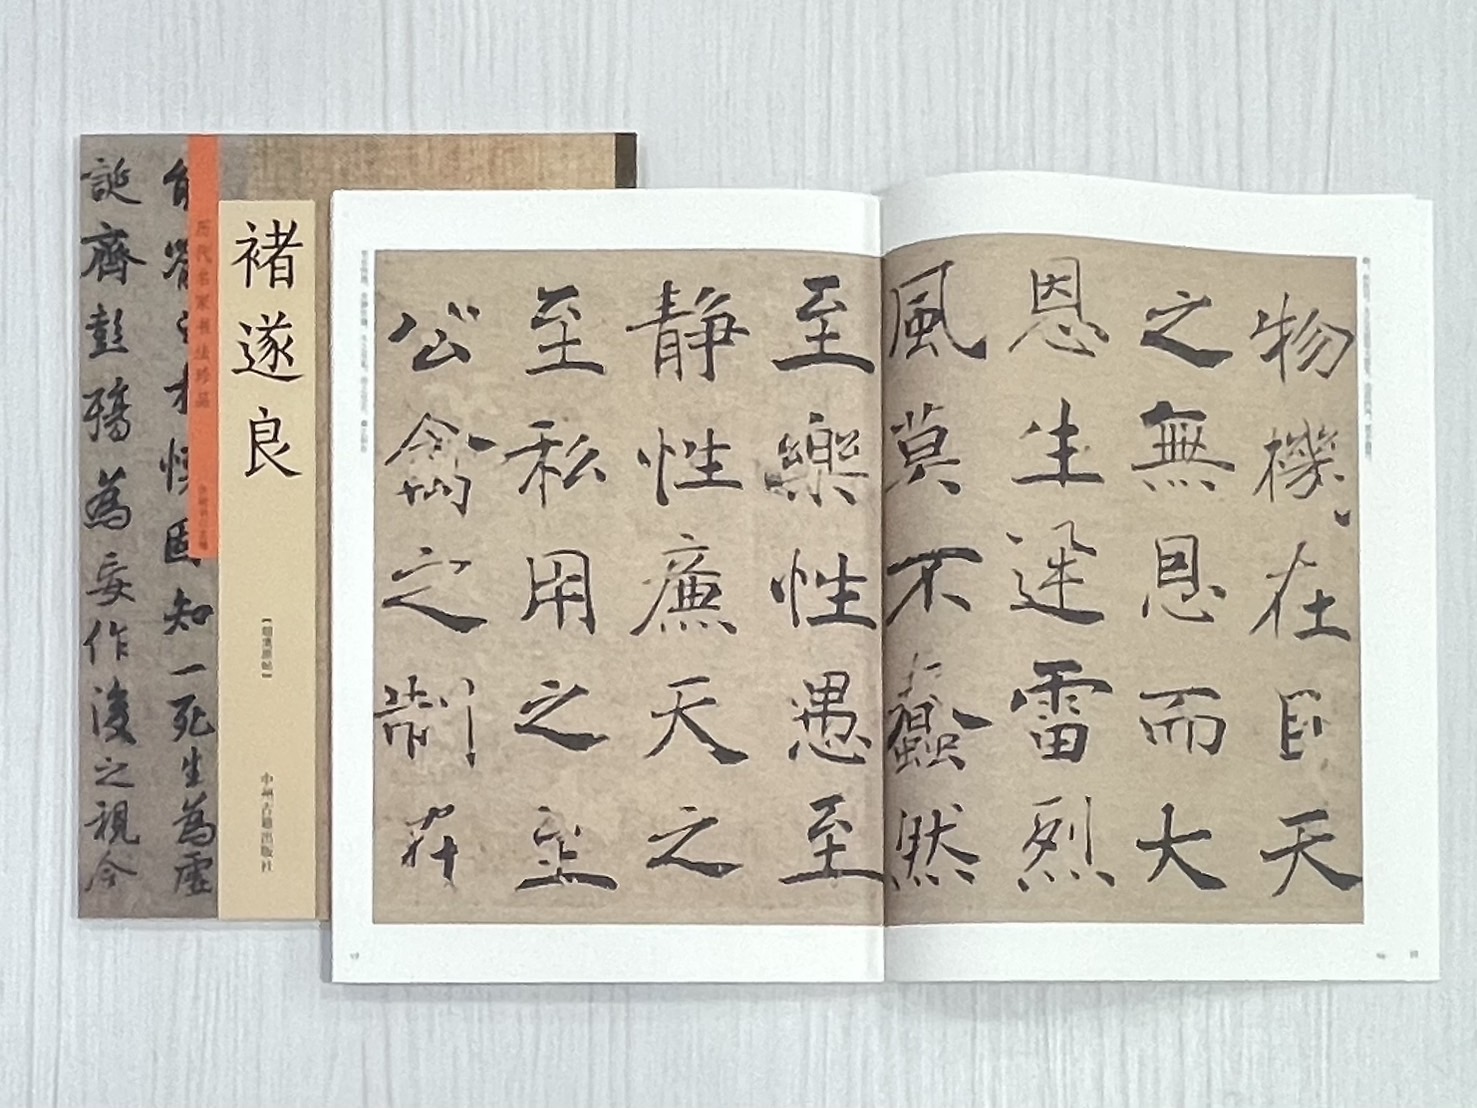 褚遂良
历代名家书法珍品
中州古籍出版社
誕齊彭殤為妄作後之視今
知一死生為虛
物機在目天
之無恩而大
恩生迅雷烈
風莫不蠢然
至樂性愚至
静性廉天之
至私用之至
公禽之制在